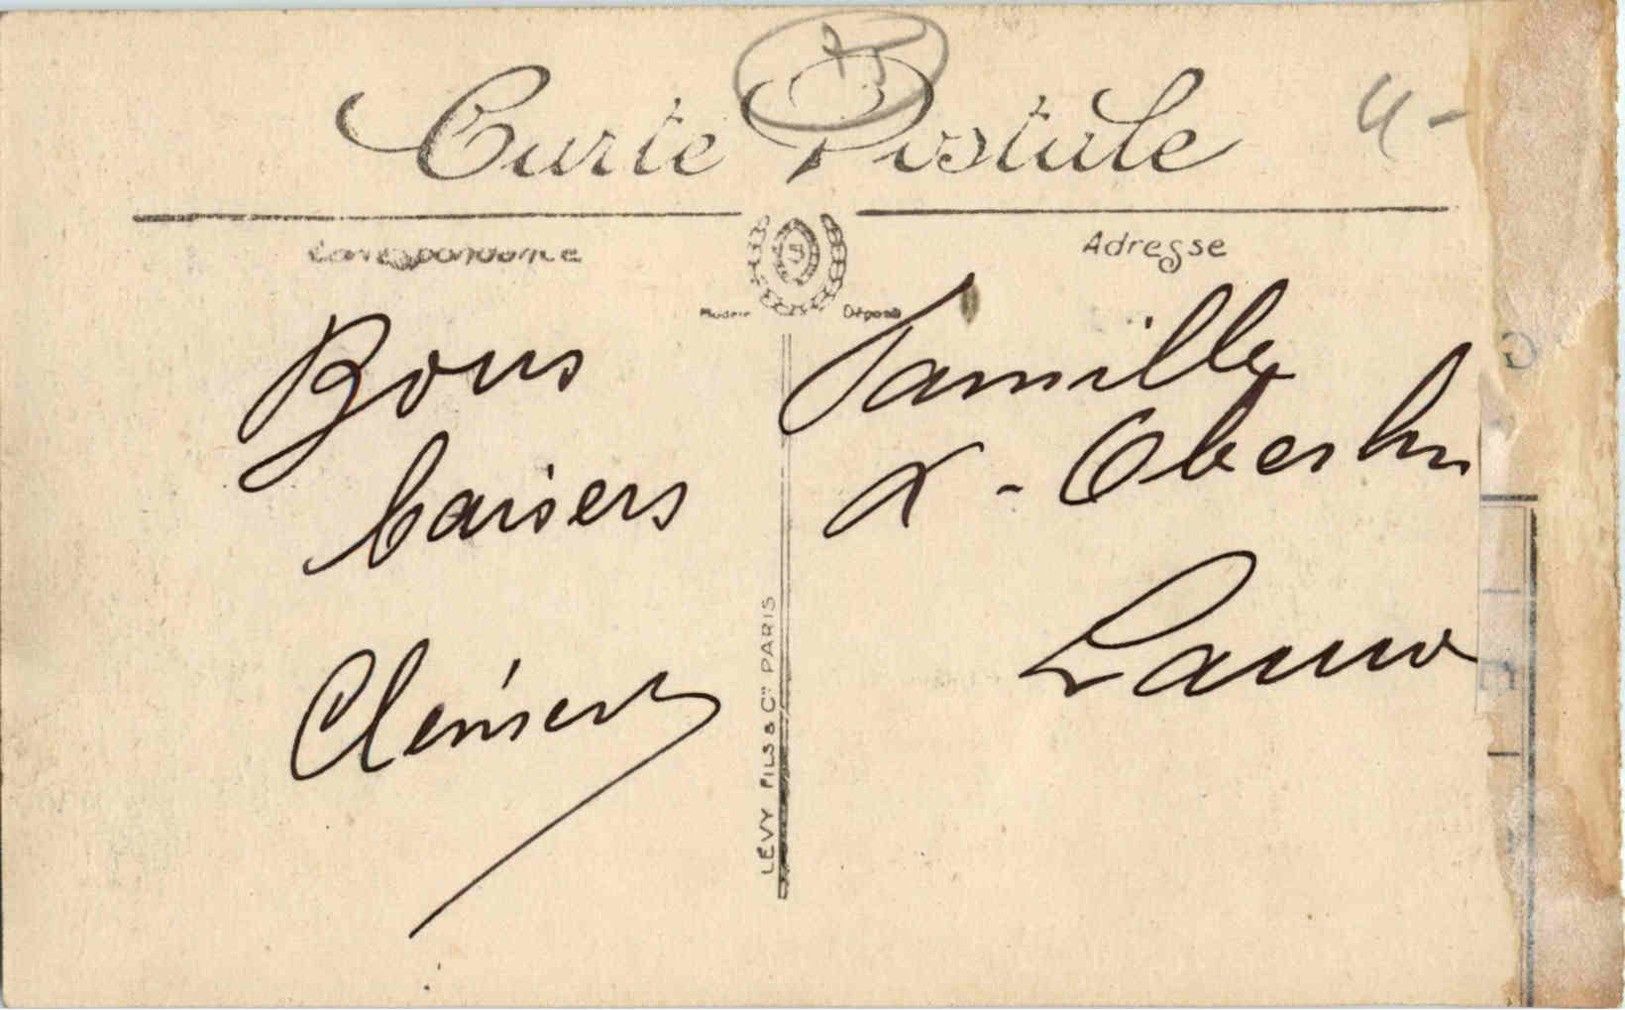 Carte Postale
Correspondance
Adresse
Modèle Déposé
Bons
baisers
Clément
Famille
X - Oberlin
Lauw
LÉVY FILS & Cie PARIS
4-